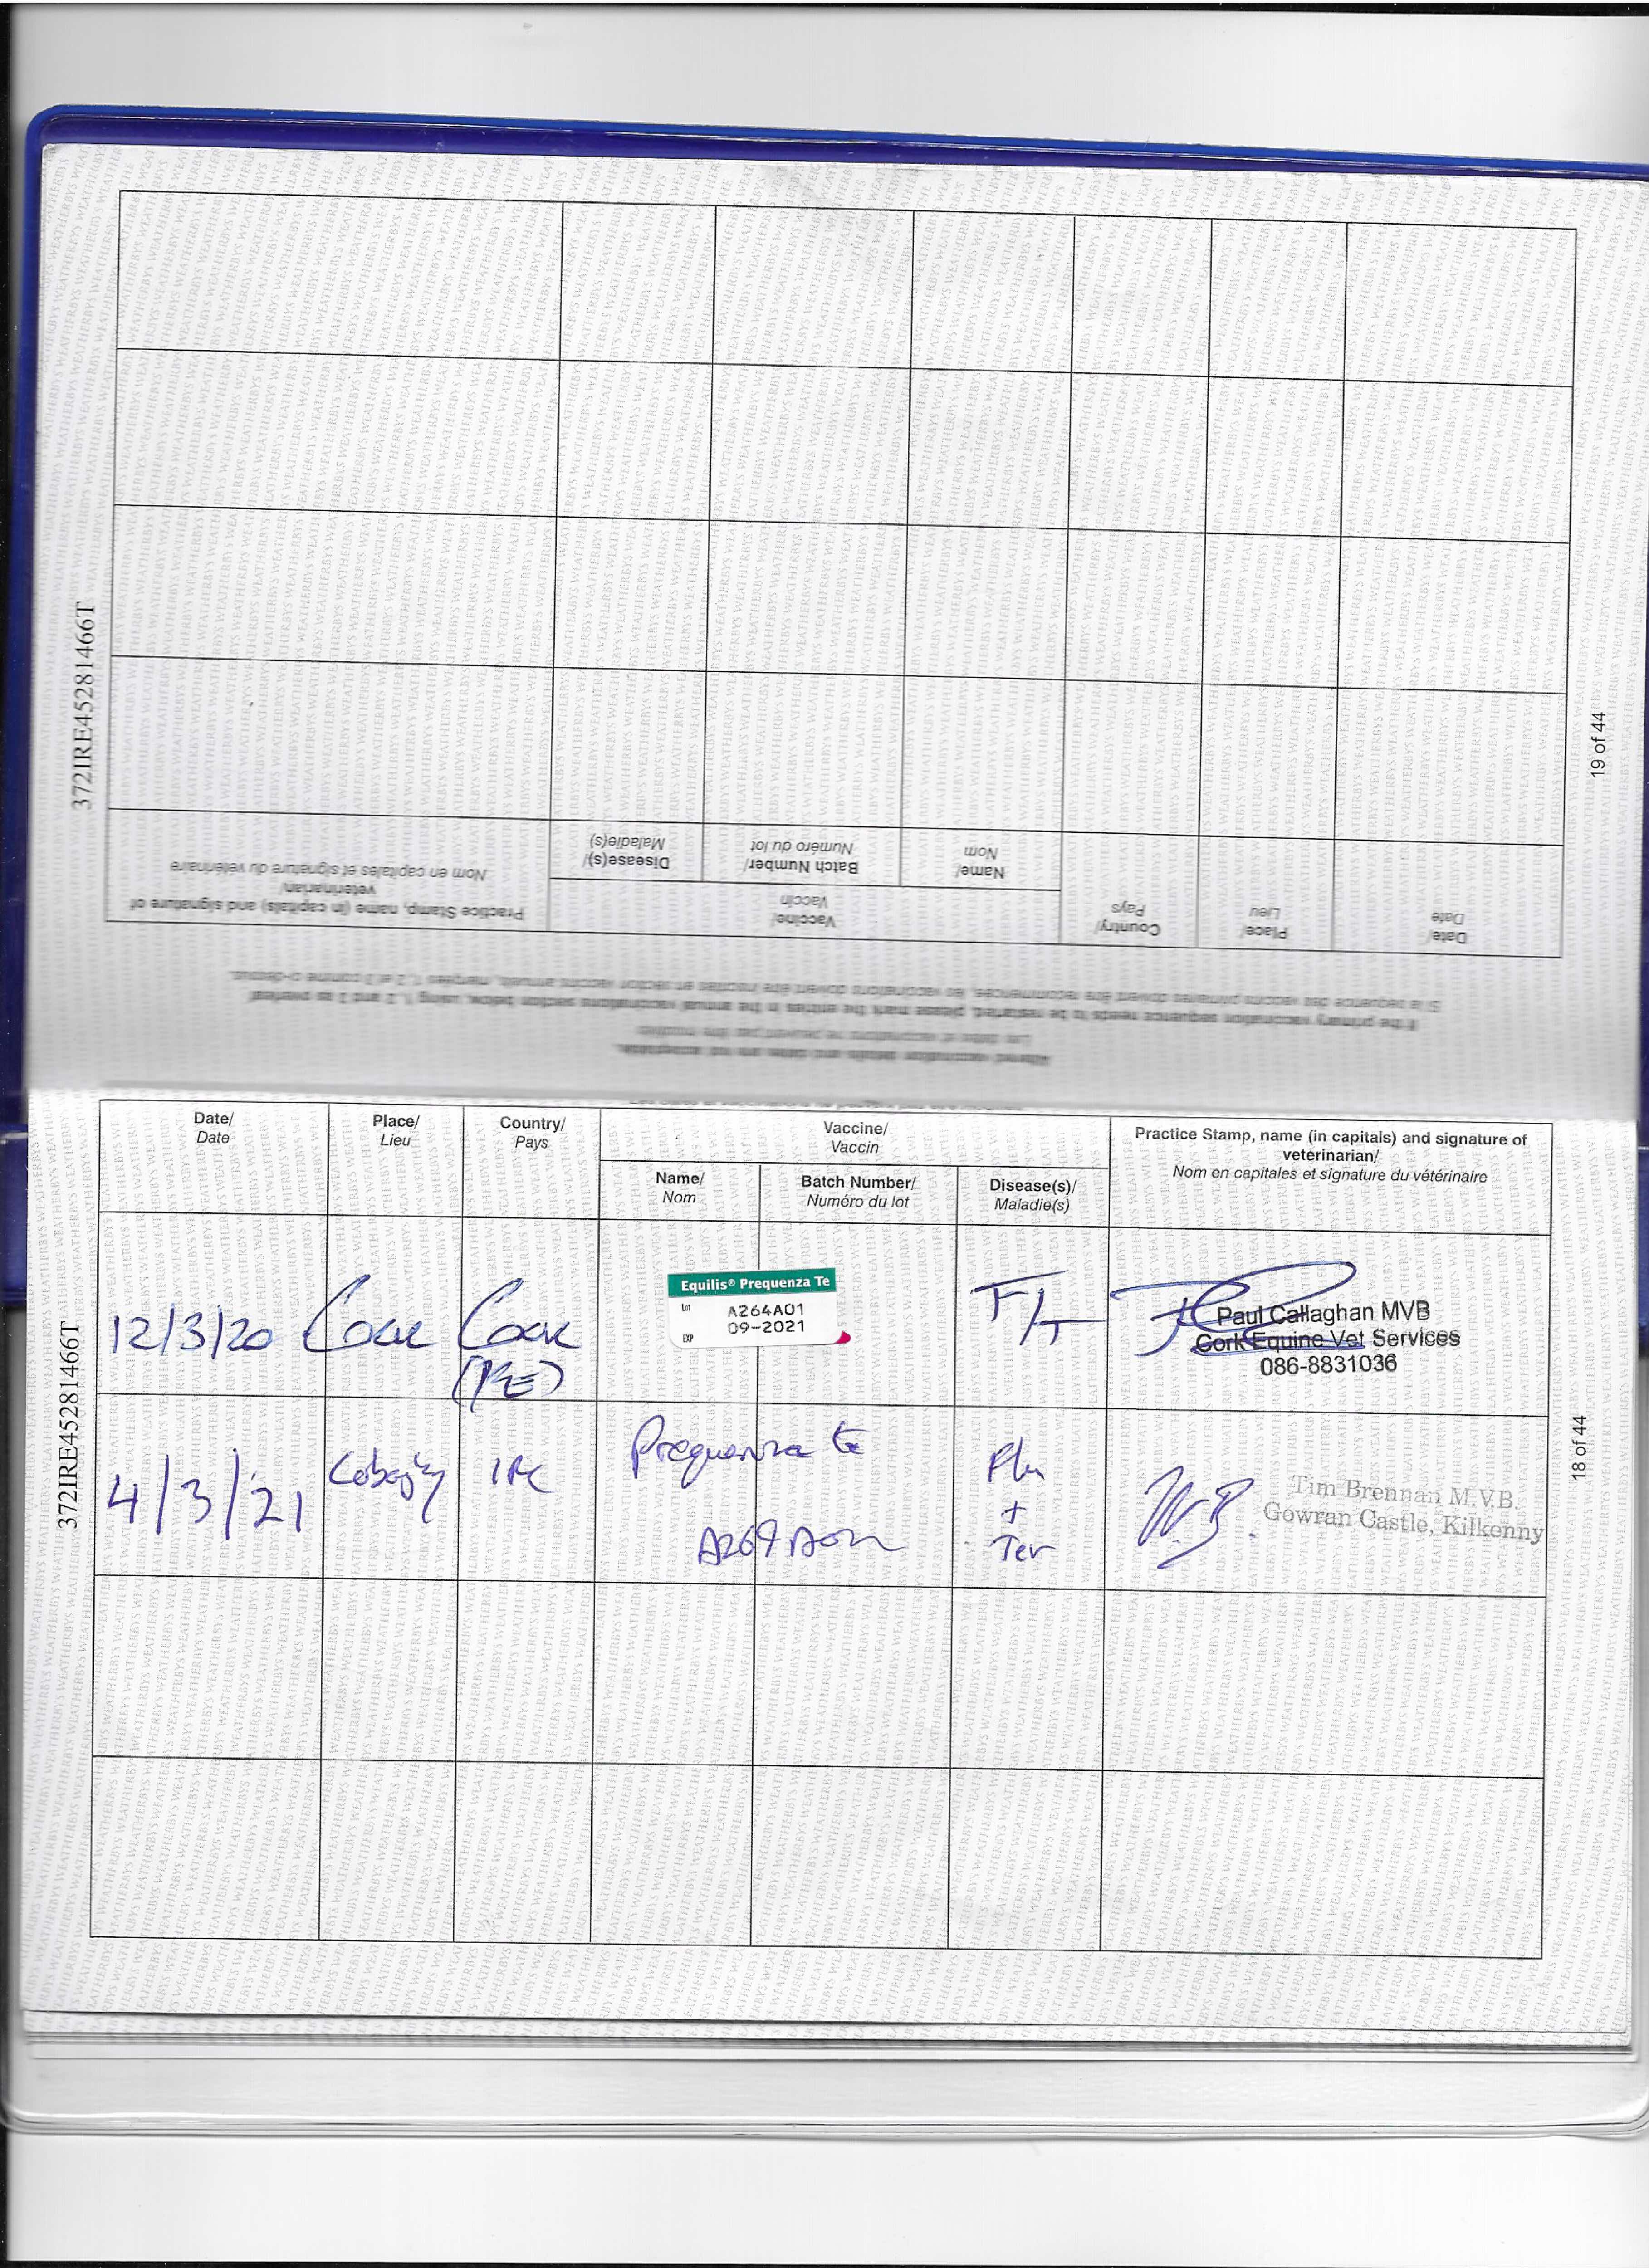 Date/
Date
Place/
Lieu
Country/
Pays
Vaccine/
Vaccin
Name/
Nom
Batch Number/
Numéro du lot
Disease(s)/
Maladie(s)
Practice Stamp, name (in capitals) and signature of
veterinarian/
Nom en capitales et signature du vétérinaire
372IRE45281466T
19 of 44
Altered vaccination details and dates are not acceptable.
Les dates et vaccinations ne peuvent pas être modifiés
If the primary vaccination sequence needs to be restarted, please mark the entries in the annual vaccinations section below, using 1, 2 and 3 as overleaf
Si la séquence des vaccins primaires doivent être recommencées, les vaccinations doivent être inscrites en section vaccins annuels, marquées 1, 2 et 3 comme ci-dessus.
Date/
Date
Place/
Lieu
Country/
Pays
Vaccine/
Vaccin
Name/
Nom
Batch Number/
Numéro du lot
Disease(s)/
Maladie(s)
Practice Stamp, name (in capitals) and signature of
veterinarian/
Nom en capitales et signature du vétérinaire
12/3/20
Cork
Cork
(IRE)
Equilis® Prequenza Te
Lot A264A01
EXP 09-2021
F/T
Paul Callaghan MVB
Cork Equine Vet Services
086-8831036
4/3/21
IRE
Prequenza te
Flu
+
Tet
Tim Brennan M.V.B.
Gowran Castle, Kilkenny
372IRE45281466T
18 of 44